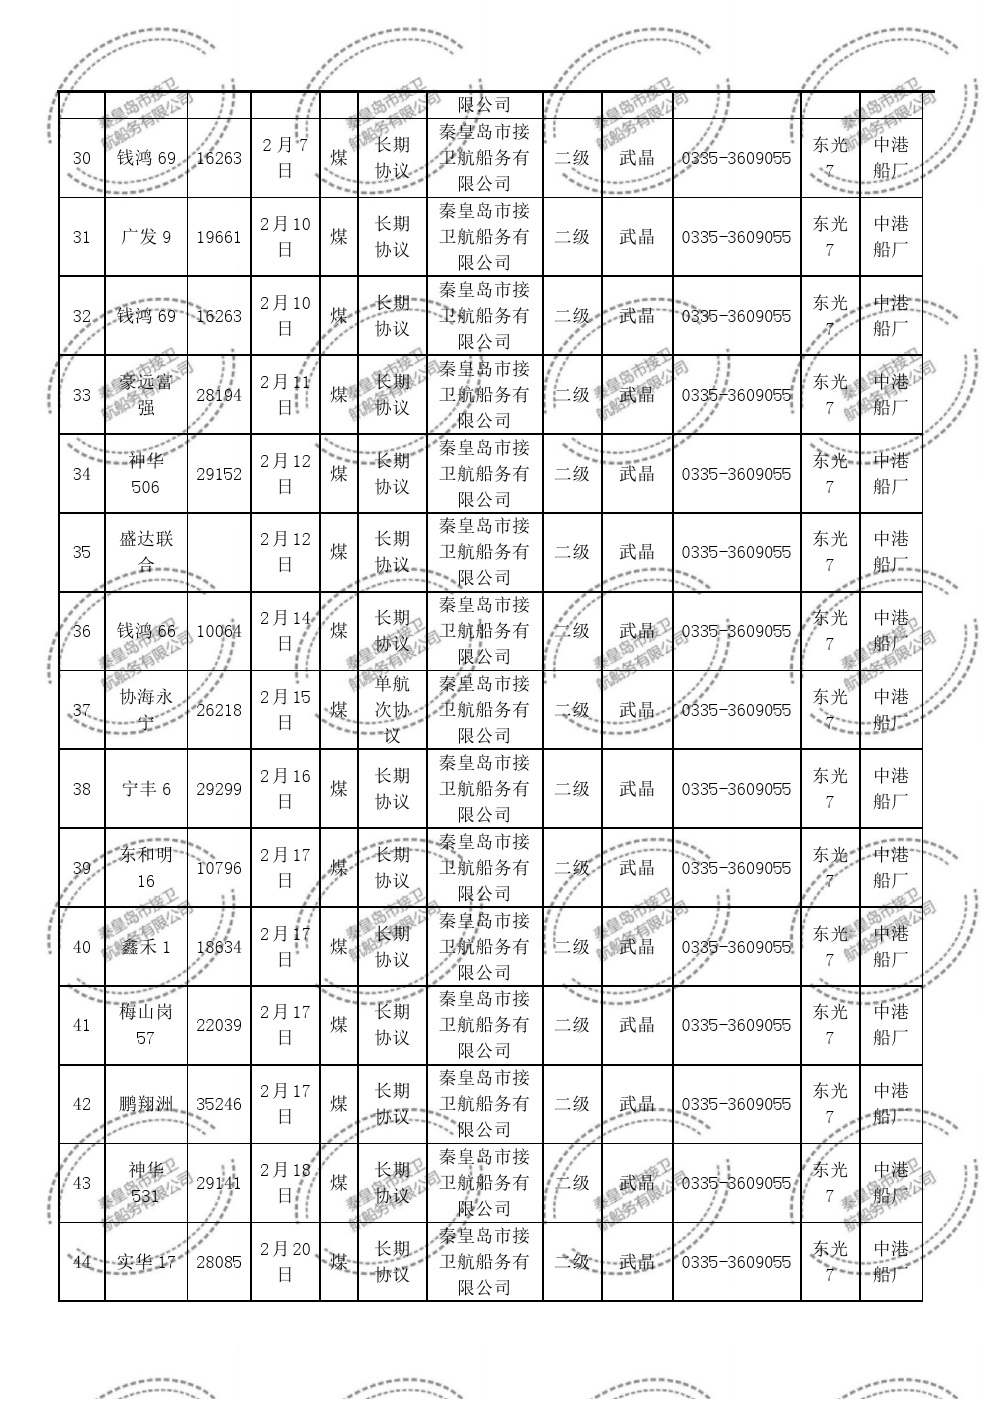 限公司
30 钱鸿 69 16263 2 月 7 日 煤 长期协议 秦皇岛市接卫航船务有限公司 二级 武晶 0335-3609055 东光 7 中港船厂
31 广发 9 19661 2 月 10 日 煤 长期协议 秦皇岛市接卫航船务有限公司 二级 武晶 0335-3609055 东光 7 中港船厂
32 钱鸿 69 16263 2 月 10 日 煤 长期协议 秦皇岛市接卫航船务有限公司 二级 武晶 0335-3609055 东光 7 中港船厂
33 豪远富强 28194 2 月 11 日 煤 长期协议 秦皇岛市接卫航船务有限公司 二级 武晶 0335-3609055 东光 7 中港船厂
34 神华 506 29152 2 月 12 日 煤 长期协议 秦皇岛市接卫航船务有限公司 二级 武晶 0335-3609055 东光 7 中港船厂
35 盛达联合 2 月 12 日 煤 长期协议 秦皇岛市接卫航船务有限公司 二级 武晶 0335-3609055 东光 7 中港船厂
36 钱鸿 66 10064 2 月 14 日 煤 长期协议 秦皇岛市接卫航船务有限公司 二级 武晶 0335-3609055 东光 7 中港船厂
37 协海永宁 26218 2 月 15 日 煤 单航次协议 秦皇岛市接卫航船务有限公司 二级 武晶 0335-3609055 东光 7 中港船厂
38 宁丰 6 29299 2 月 16 日 煤 长期协议 秦皇岛市接卫航船务有限公司 二级 武晶 0335-3609055 东光 7 中港船厂
39 东和明 16 10796 2 月 17 日 煤 长期协议 秦皇岛市接卫航船务有限公司 二级 武晶 0335-3609055 东光 7 中港船厂
40 鑫禾 1 18634 2 月 17 日 煤 长期协议 秦皇岛市接卫航船务有限公司 二级 武晶 0335-3609055 东光 7 中港船厂
41 梅山岗 57 22039 2 月 17 日 煤 长期协议 秦皇岛市接卫航船务有限公司 二级 武晶 0335-3609055 东光 7 中港船厂
42 鹏翔洲 35246 2 月 17 日 煤 长期协议 秦皇岛市接卫航船务有限公司 二级 武晶 0335-3609055 东光 7 中港船厂
43 神华 531 29141 2 月 18 日 煤 长期协议 秦皇岛市接卫航船务有限公司 二级 武晶 0335-3609055 东光 7 中港船厂
44 实华 17 28085 2 月 20 日 煤 长期协议 秦皇岛市接卫航船务有限公司 二级 武晶 0335-3609055 东光 7 中港船厂